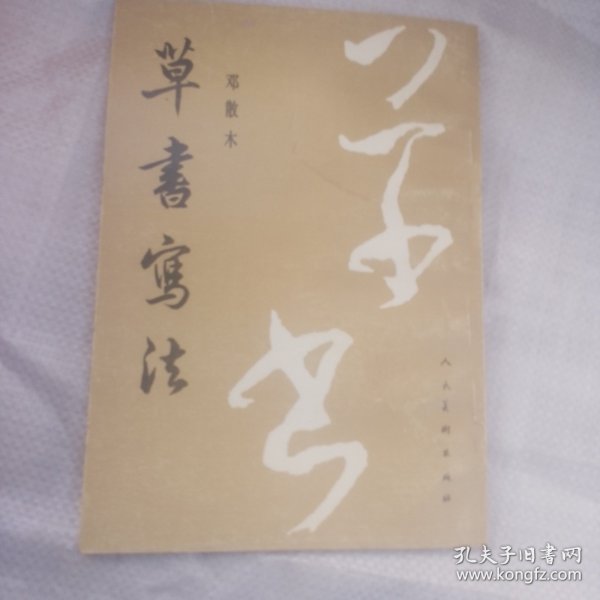 草書寫法
邓散木
草书
人民美術出版社
孔夫子旧書网
www.kongfz.com